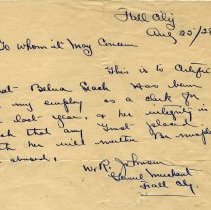 Hall City
Aug 22/28
To Whom it May Concern
This is to Certify
that Belua Leach Has been
in my employ as a clerk for
last year, & her integrity is
such that any Trust placed
in her will neither Be misplaced
or abused.
W. R. Johnson
General Merchant
Hall City.